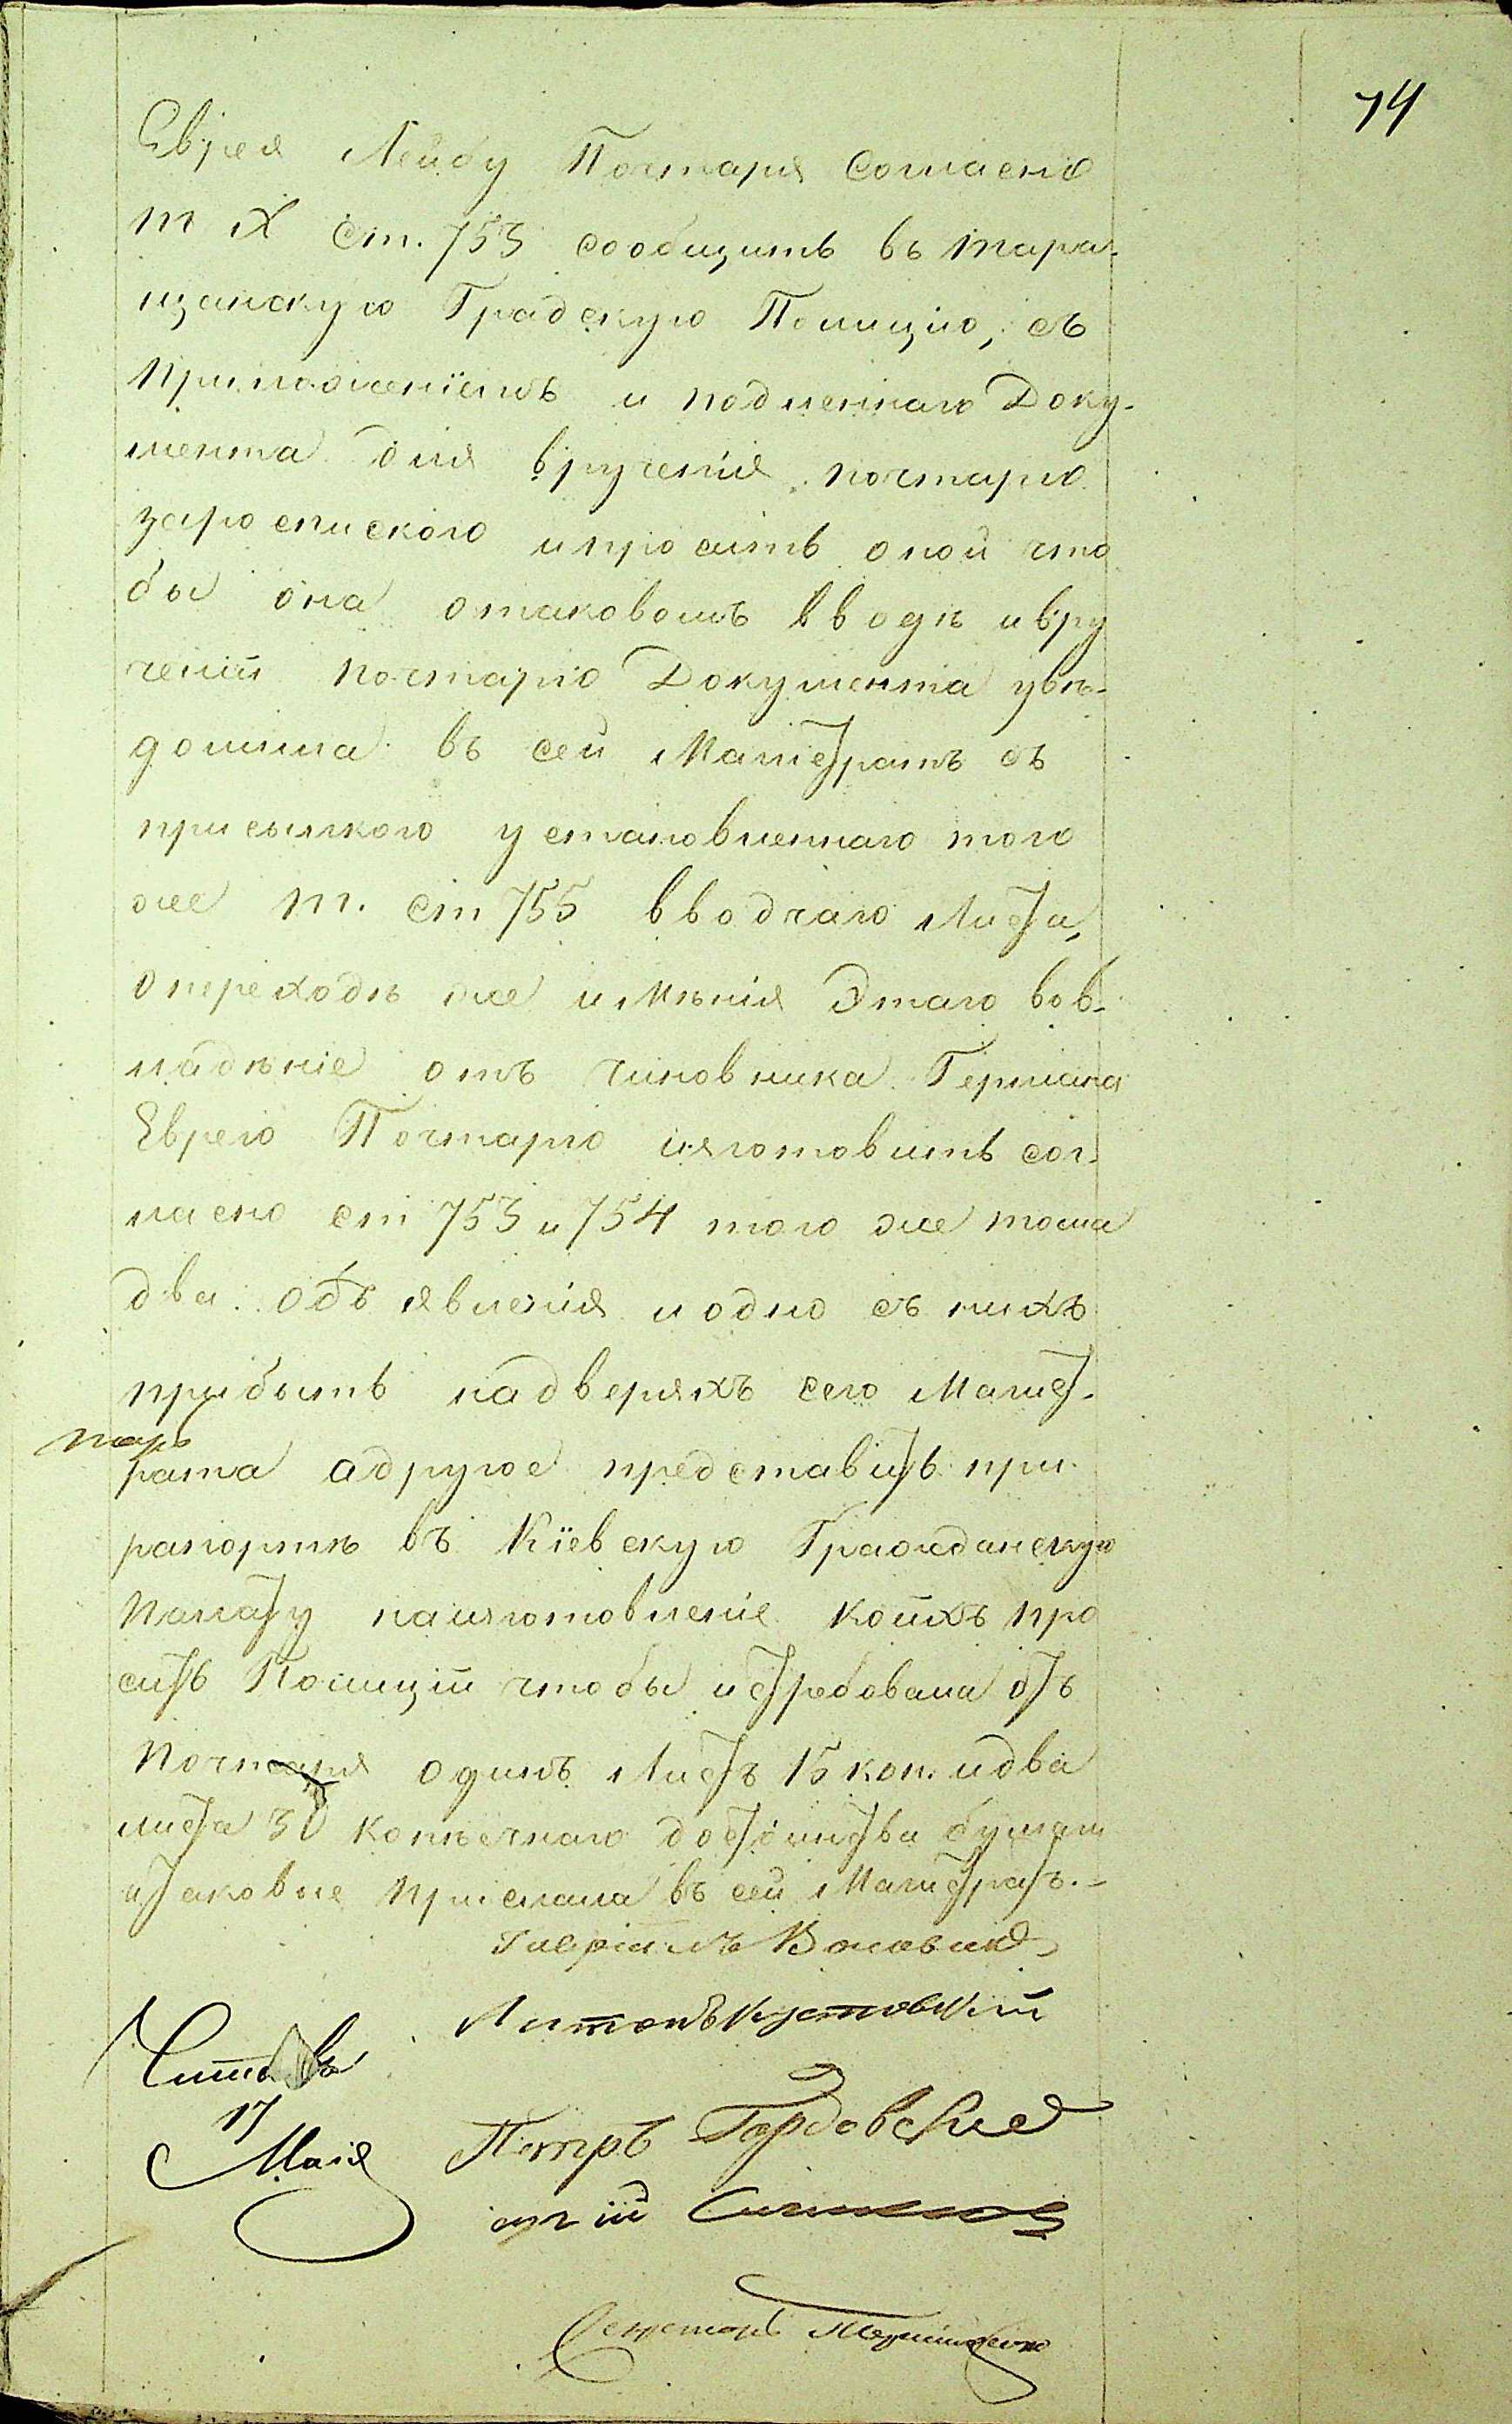 74
Еврея Лейбу Почтаря Согласно
т X ст. 753 сообщить въ тара-
щанскую Градскую Полицію, съ
приложеніемъ и подленнаго Доку-
мента для врученія почтарю
заросписокою ипросить оной что
бы она отаковомъ вводѣ ивру
ченіи почтарю Документа увѣ-
домила въ сей Магистратъ съ
присылкою установленнаго того
же т. ст 755 вводчаго Листа,
опереходѣ же имѣнія Этаго вов-
ладѣніе отъ чиновника Германа
Еврею Почтарю изготовить сог-
ласно ст 753 и 754 того же тома
два объявленія и одно съ нихъ
прибыть надверяхъ сего Магист-
рата адругое представить при
рапортѣ въ Кіевскую Гражданскую
Палату наизготовленіе коихъ про
сить Полиціи чтобы истребовала отъ
Почтаря одинъ Листъ 15 коп. идва
листа 30 копѣечнаго достоинства бумаги
итаковые прислала въ сей Магистратъ.-
Гавріилъ
Антонъ Кустовскій
Читалъ
17
Мая
Петръ
Секретарь